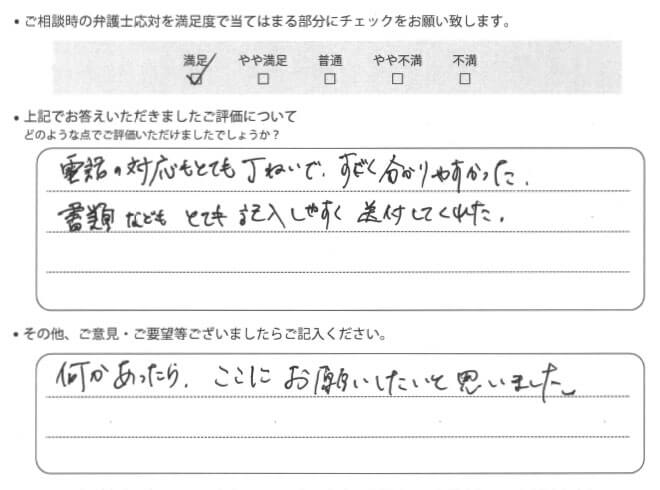 ・ご相談時の弁護士応対を満足度で当てはまる部分にチェックをお願い致します。
満足 やや満足 普通 やや不満 不満
☑ □ □ □ □
・上記でお答えいただきましたご評価について
どのような点でご評価いただけましたでしょうか？
電話の対応もとても丁ねいで、すごく分かりやすかった。
書類なども とても 記入しやすく 送付してくれた。
・その他、ご意見・ご要望等ございましたらご記入ください。
何かあったら、ここに お願いしたいと思いました。